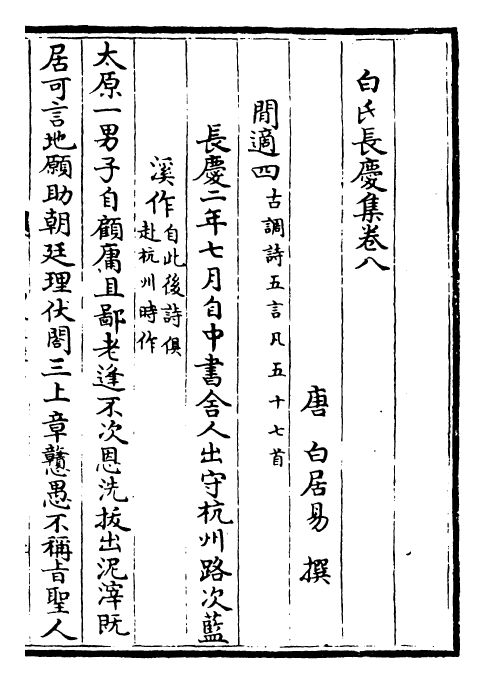 白氏長慶集卷八
唐白居易撰
閒適四古調詩五言凡五十七首
長慶二年七月自中書舍人出守杭州路次藍
溪作自此後詩俱
赴杭州時作
太原一男子自顧庸且鄙老逢不次恩洗拔出泥滓既
居可言地願助朝廷理伏閤三上章戇愚不稱旨聖人